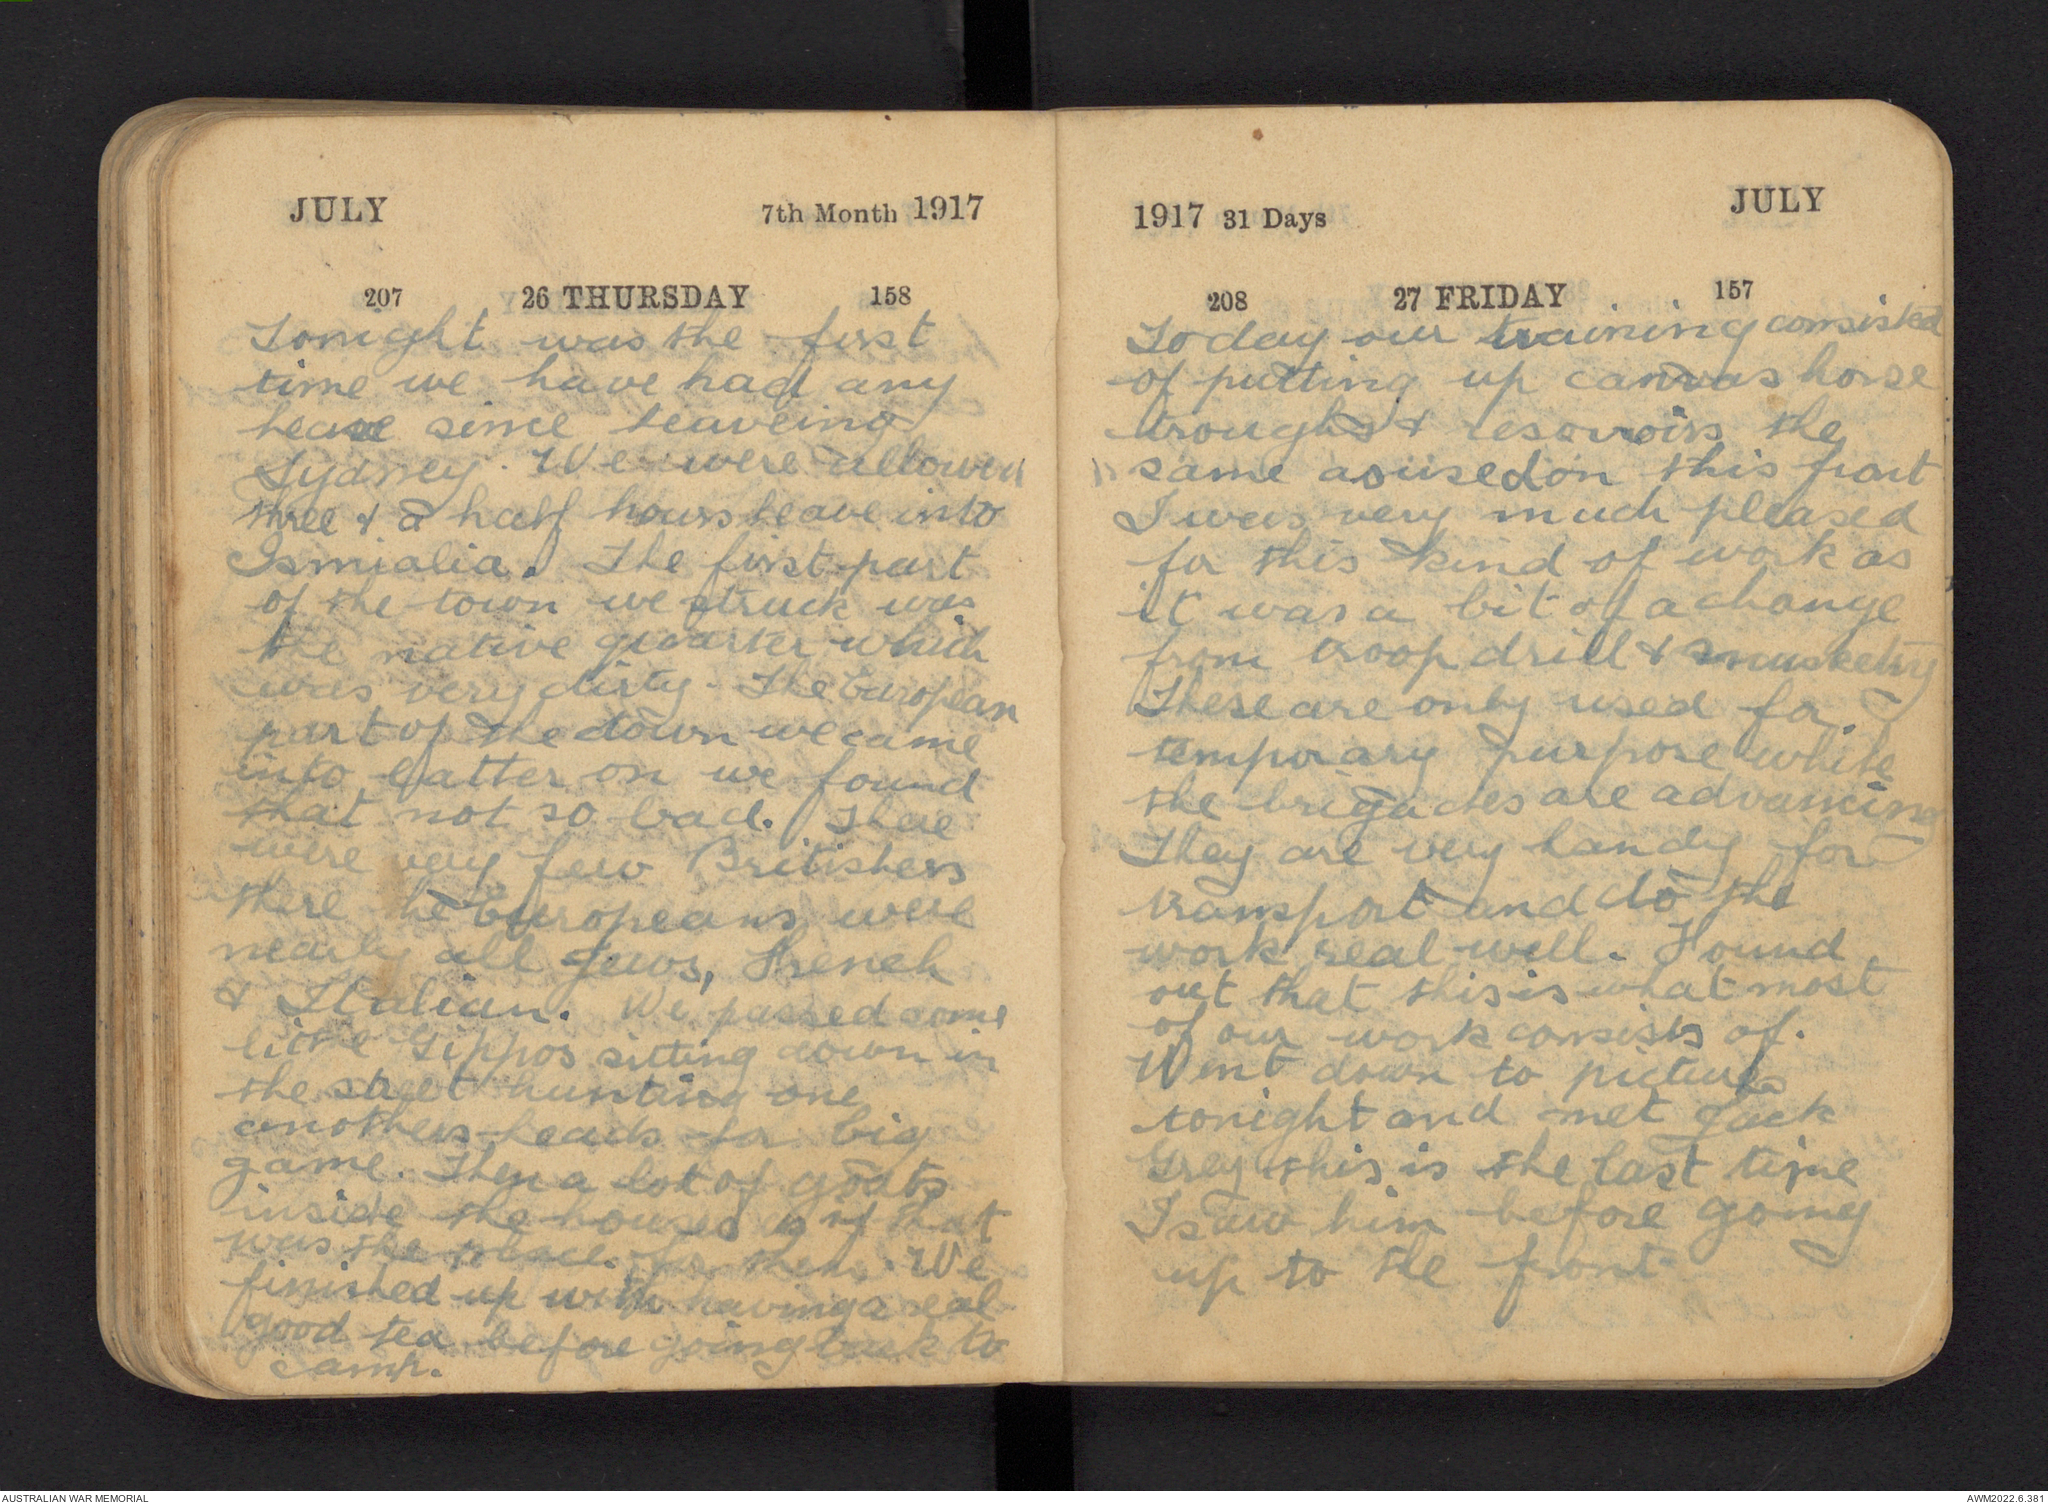 JULY 7th Month 1917
207 26 THURSDAY 158
Tonight was the first
time we have had any
leave since leaveing
Sydney. We were allowed
three & a half hours leave into
Ismialia. The first part
of the town we struck was
the native quarter which
was very dirty. The European
part of the town we came
into latter on we found
that not so bad. There
were very few Britishers
there the Europeans were
nearly all Jews, French
& Italian. We passed some
little Gippos sitting down in
the street hunting one
anothers heads for big
game. Then a lot of goats
inside the houses as if that
was the place for them. We
finished up with having a real
good tea before going back to
camp.
1917 31 Days JULY
208 27 FRIDAY 157
Today our training consisted
of putting up canvas horse
troughs & resovoirs the
same as used on this front
I was very much pleased
for this kind of work as
it was a bit of a change
from troop drill & musketry
These are only used for
temporary purpose while
the brigades are advancing
They are very handy for
transport and do the
work real well. Found
out that this is what most
of our work consists of.
Went down to pictures
tonight and met Jack
Grey this is the last time
I saw him before going
up to the front
AUSTRALIAN WAR MEMORIAL AWM2022.6.381